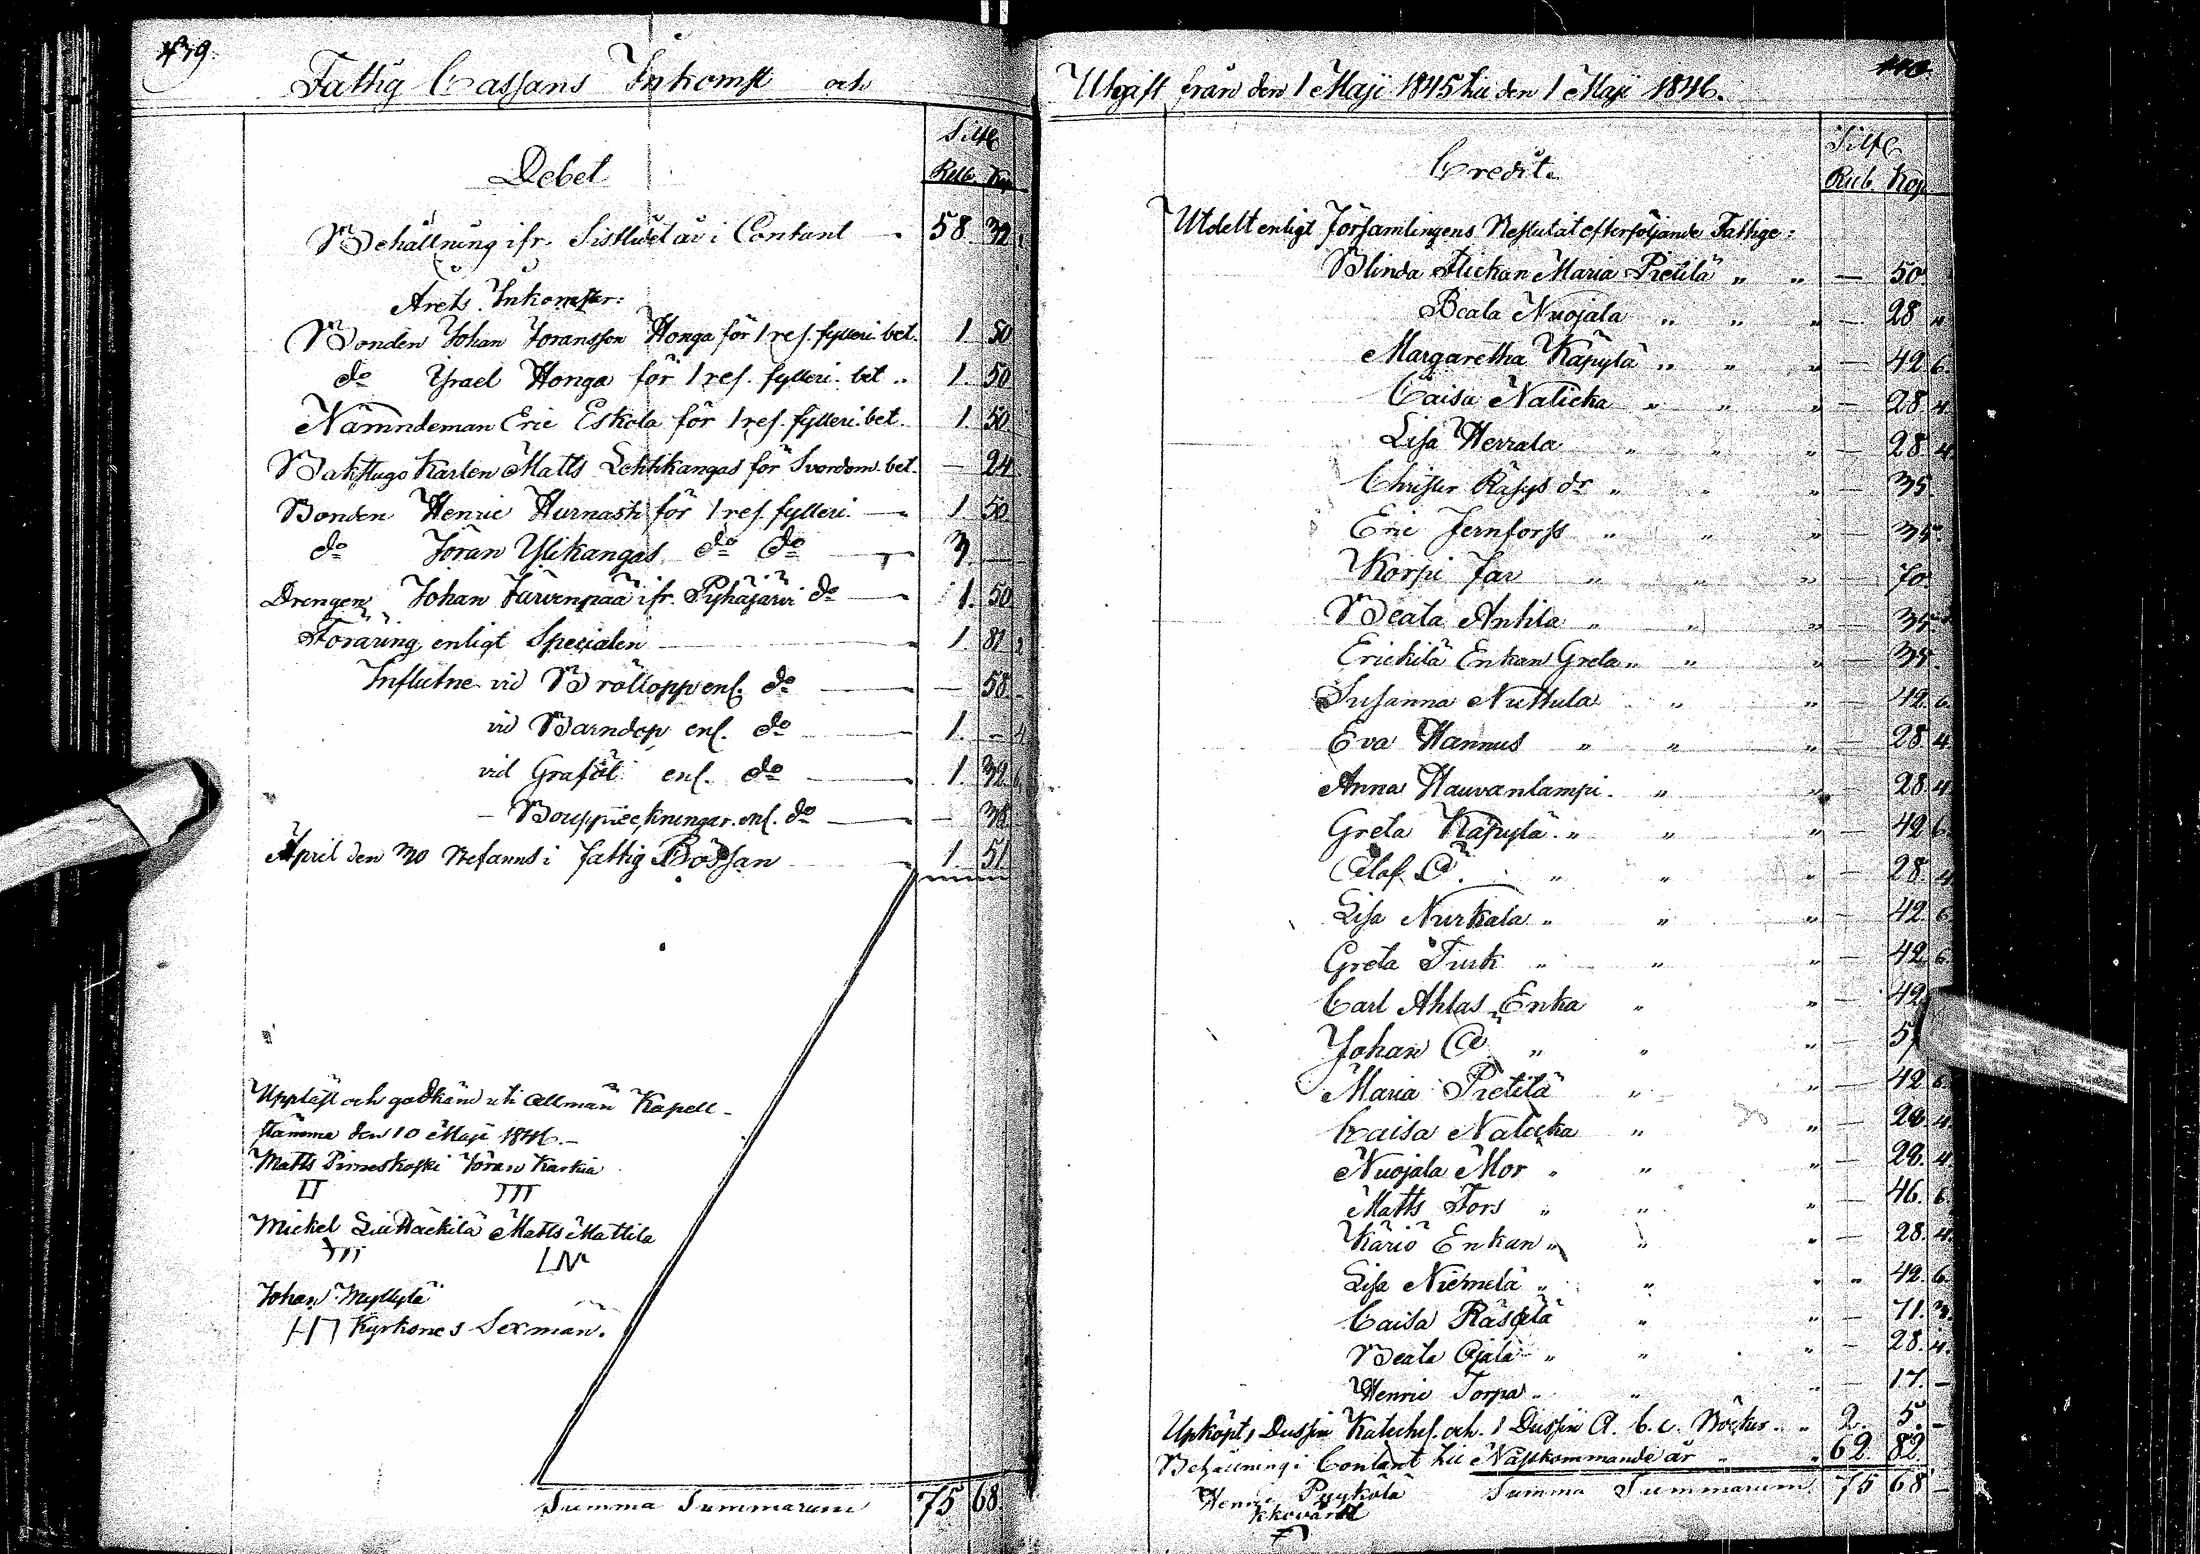 439.
Fattig Cassans Inkomst och
Silfr
Debet
Rub. Kop
Behållning ifr. Sistlidet år i Contant 58. 32
Årets Inkomster:
Bonden Johan Joransson Honga för 1 res. fylleri bet. 1. 50
do Israel Honga för 1 res. fylleri bet 1. 50
Nämndeman Eric Eskola för 1 res. fylleri bet. 1. 50
Bakstugo Karlen Matts Lehtikangas för Svordom bet. — 24
Bonden Henric Hurnask för 1 res. fylleri 1 50
do Jöran Ylikangas do do 3. —
Drengen Johan Järvenpää ifr. Pyhäjärvi do 1. 50
Föräring enligt Specialen 1. 81 2
Influtne vid Bröllopp enl. do — 58
vid Barndop enl. do 1. — 4
vid Graföl enl. do 1. 32
Bouppteckningar enl. do — 38
April den 30 Befanns i fattig Bössan 1 51
Uppläst och godkänd uti Allmän Kapell-
stämma den 10 Maji 1846.
Matts Pirneskoski Jöran Karkia
Mickel Matts Mattila
Johan Myllylä
Kyrkones Sexmän.
Summa Summarum 75 68.
Utgift från den 1 Maji 1845 till den 1 Maji 1846.
440
Silfr
Credit.
Rub. Kop
Utdelt enligt Församlingens Beslut åt efterföljande Fattige:
Blinda Flickan Maria Pietilä " " — 50
Beata Nuojala " " " — 28 4
Margaretha Käpylä " " " — 42 6.
Caisa Naticka " " " — 28 4.
Lisa Herrala " " " — 28 4
Christer Räsys dr " " " — 35.
Eric Jernforss " " " — 35.
Korpi far " " " — 70
Beata Antila " " " — 35
Erickilä Enkan Greta " " — 35.
Susanna Nuttula " " — 42 6
Eva Hannus " " " — 28 4
Anna Hauvanlampi. " " — 28 4.
Greta Käpylä " " " — 42 6.
Olof O. " " " — 28. 4
Lisa Nurkala " " " — 42. 6
Greta Turk " " " — 42 6.
Carl Ahlas Enka " " — 42
Johan O " " " — 5
Maria Pietilä " " — 42 6
Caisa Naticka " " — 28 4.
Nuojala Mor " " " — 28. 4
Matts Fors " " " — 46. 6.
Käriö Enkan " " " — 28. 4.
Lisa Niemelä " " " " 42. 6.
Caisa Räsälä " " — 71. 3.
Beata Ojala " " " — 28. 4.
Henric Torpa " " " — 17. —
Upköpt 1 Dussin Kateches. och 1 Dussin A. b. c. Böcker 2. 5. —
Behållning i Contant till Nästkommande år 62. 82.
Summa Summarum 75 68 —
Puykölä